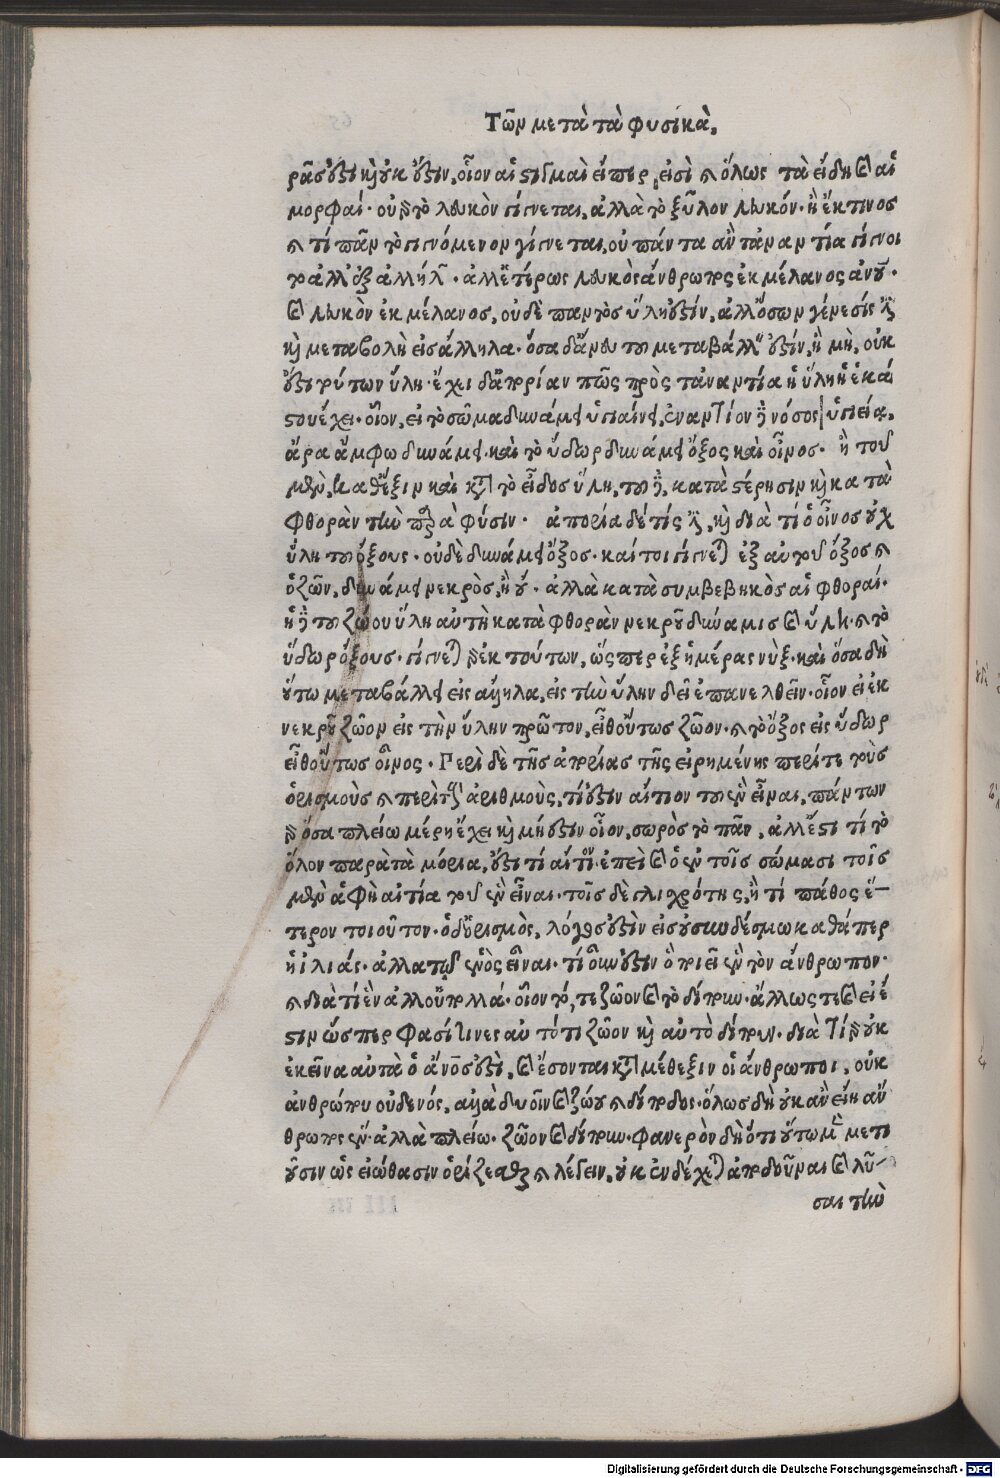 Τῶν μετὰ τὰ φυσικὰ.
ρᾶς ἔστι καὶ οὐκ ἔστιν, οἷον αἱ στιγμαὶ εἴπερ εἰσὶ καὶ ὅλως τὰ εἴδη καὶ αἱ
μορφαί· οὐ γὰρ τὸ λευκὸν γίγνεται, ἀλλὰ τὸ ξύλον λευκόν· ἢ ἔκ τινος
καὶ τί πᾶν τὸ γιγνόμενον γίγνεται, οὐ πάντα ἂν τἀναντία γίγνοι
το ἀλλ' ἐξ ἀλλήλων· ἀλλ' ἑτέρως λευκὸς ἄνθρωπος ἐκ μέλανος ἀνου·
καὶ λευκὸν ἐκ μέλανος, οὐδὲ παντὸς ὕλη ἐστίν, ἀλλ' ὅσων γένεσίς ἐστι
καὶ μεταβολὴ εἰς ἄλληλα· ὅσα δ' ἄνευ τοῦ μεταβάλλειν ἐστίν, ἢ μὴ, οὐκ
ἔστι τούτων ὕλη· ἔχει δ' ἀπορίαν πῶς πρὸς τἀναντία ἡ ὕλη ἡ ἑκά
στου ἔχει· οἷον, εἰ τὸ σῶμα δυνάμει ὑγιαίνει, ἐναντίον δὲ νόσος ὑγιεία,
ἆρα ἄμφω δυνάμει· καὶ τὸ ὕδωρ δυνάμει ὄξος καὶ οἶνος· ἢ τοῦ
μὲν, καθ' ἕξιν καὶ κατὰ τὸ εἶδος ὕλη, τοῦ δὲ, κατὰ στέρησιν καὶ κατὰ
φθορὰν τὴν παρὰ φύσιν· ἀπορία δέ τίς ἐστι, καὶ διὰ τί ὁ οἶνος οὐχ
ὕλη τοῦ ὄξους· οὐδὲ δυνάμει ὄξος· καίτοι γίγνεται ἐξ αὐτοῦ ὄξος καὶ
ὁ ζῶν, δυνάμει νεκρὸς, ἢ οὔ· ἀλλὰ κατὰ συμβεβηκὸς αἱ φθοραί·
ἡ δὲ τοῦ ζώου ὕλη αὐτὴ κατὰ φθορὰν νεκροῦ δύναμις καὶ ὕλη· καὶ τὸ
ὕδωρ ὄξους· γίγνεται γὰρ ἐκ τούτων, ὥσπερ ἐξ ἡμέρας νὺξ· καὶ ὅσα δὴ
οὕτω μεταβάλλει εἰς ἄλληλα, εἰς τὴν ὕλην δεῖ ἐπανελθεῖν· οἷον εἰ ἐκ
νεκροῦ ζῶον εἰς τὴν ὕλην πρῶτον, εἶθ' οὕτως ζῶον· καὶ τὸ ὄξος εἰς ὕδωρ
εἶθ' οὕτως οἶνος· Περὶ δὲ τῆς ἀπορίας τῆς εἰρημένης περί τε τοὺς
ὁρισμοὺς καὶ περὶ τοὺς ἀριθμοὺς, τί ἐστιν αἴτιον τοῦ ἓν εἶναι, πάντων
γὰρ ὅσα πλείω μέρη ἔχει καὶ μή ἐστιν οἷον, σωρὸς τὸ πᾶν, ἀλλ' ἔστι τί τὸ
ὅλον παρὰ τὰ μόρια, ἔστι τί αἴτιον· ἐπεὶ καὶ ἐν τοῖς σώμασι τοῖς
μὲν ἁφὴ αἰτία τοῦ ἓν εἶναι· τοῖς δὲ γλισχρότης, ἤ τι πάθος ἕ-
τερον τοιοῦτον· ὁ δ' ὁρισμὸς, λόγος ἐστὶν εἷς οὐ συνδέσμῳ καθάπερ
ἡ ἰλιάς· ἀλλὰ τῷ ἑνὸς εἶναι· τί οὖν ἐστιν ὃ ποιεῖ ἓν τὸν ἄνθρωπον·
καὶ διὰ τί ἓν ἀλλ' οὐ πολλά· οἷον τό, τε ζῶον καὶ τὸ δίπουν· ἄλλως τε καὶ εἰ ἔ
στιν ὥσπερ φασί τινες αὐτό τι ζῶον καὶ αὐτὸ δίπουν· διὰ τί γὰρ οὐκ
ἐκεῖνα αὐτὰ ὁ ἄνος ἐστὶ, καὶ ἔσονται κατὰ μέθεξιν οἱ ἄνθρωποι, οὐκ
ἀνθρώπου οὐδενός, ἀλλὰ δυοῖν καὶ ζώου καὶ δίποδος· ὅλως δὴ οὐκ ἂν εἴη ἄν
θρωπος ἕν· ἀλλὰ πλείω· ζῶον καὶ δίπουν· φανερὸν δὴ ὅτι οὕτω μὲν μετι
οῦσιν ὡς εἰώθασιν ὁρίζεσθαι καὶ λέγειν, οὐκ ἐνδέχεται ἀποδοῦναι καὶ λῦ-
σαι τὴν
Digitalisierung gefördert durch die Deutsche Forschungsgemeinschaft - DFG